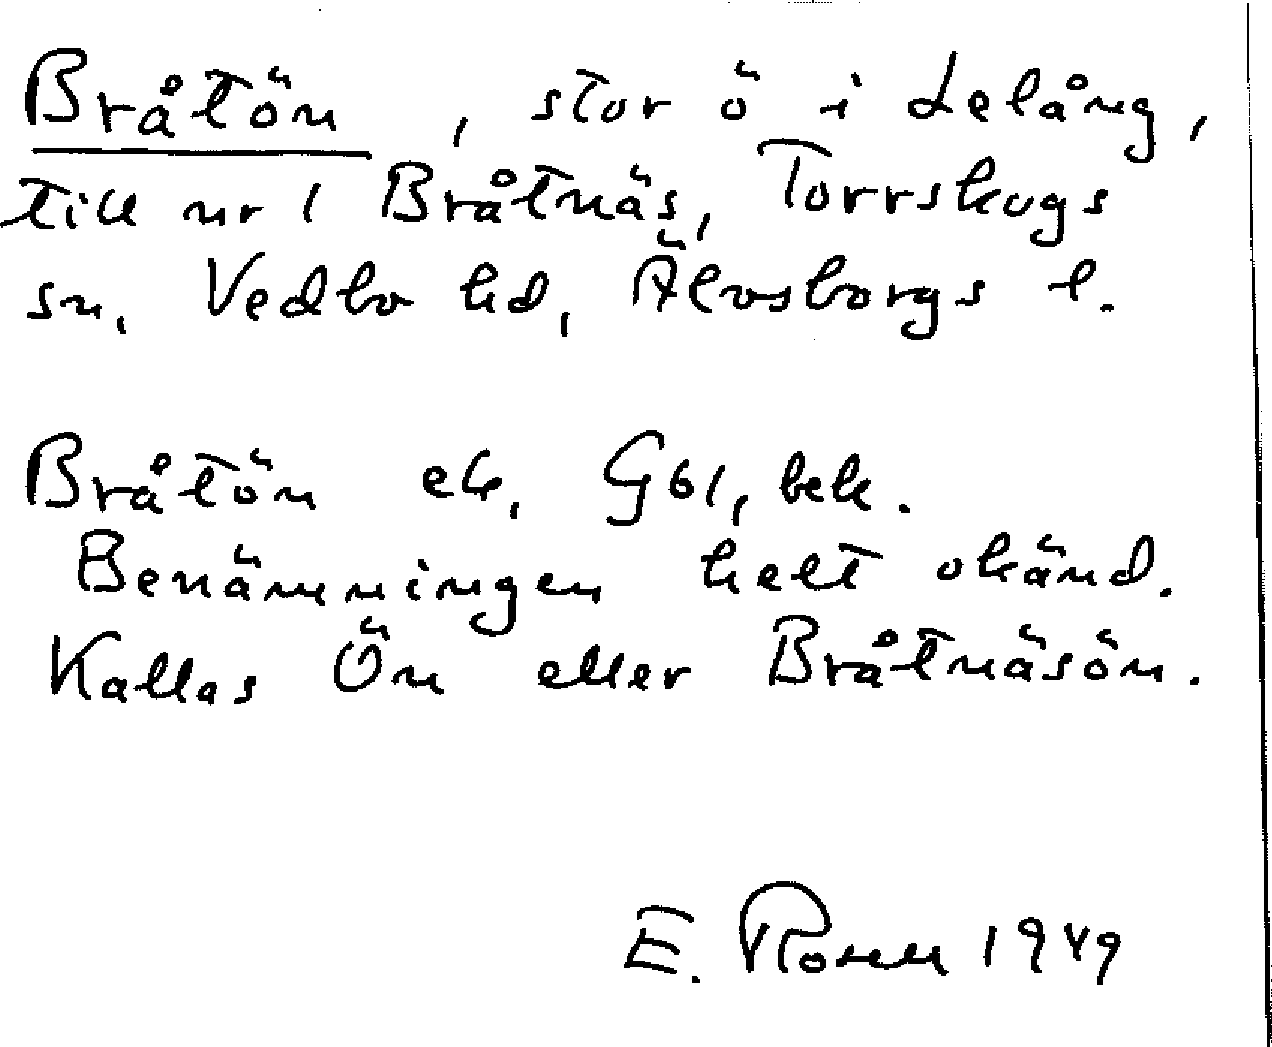 Bråtön, stor ö i Lelång,
till nr 1 Bråtnäs, Torrskogs
sn, Vedbo hd, Älvsborgs l.
Bråtön ek, G61, bek.
Benämningen helt okänd.
Kallas Ön eller Bråtnäsön.
E. Rosell 1949